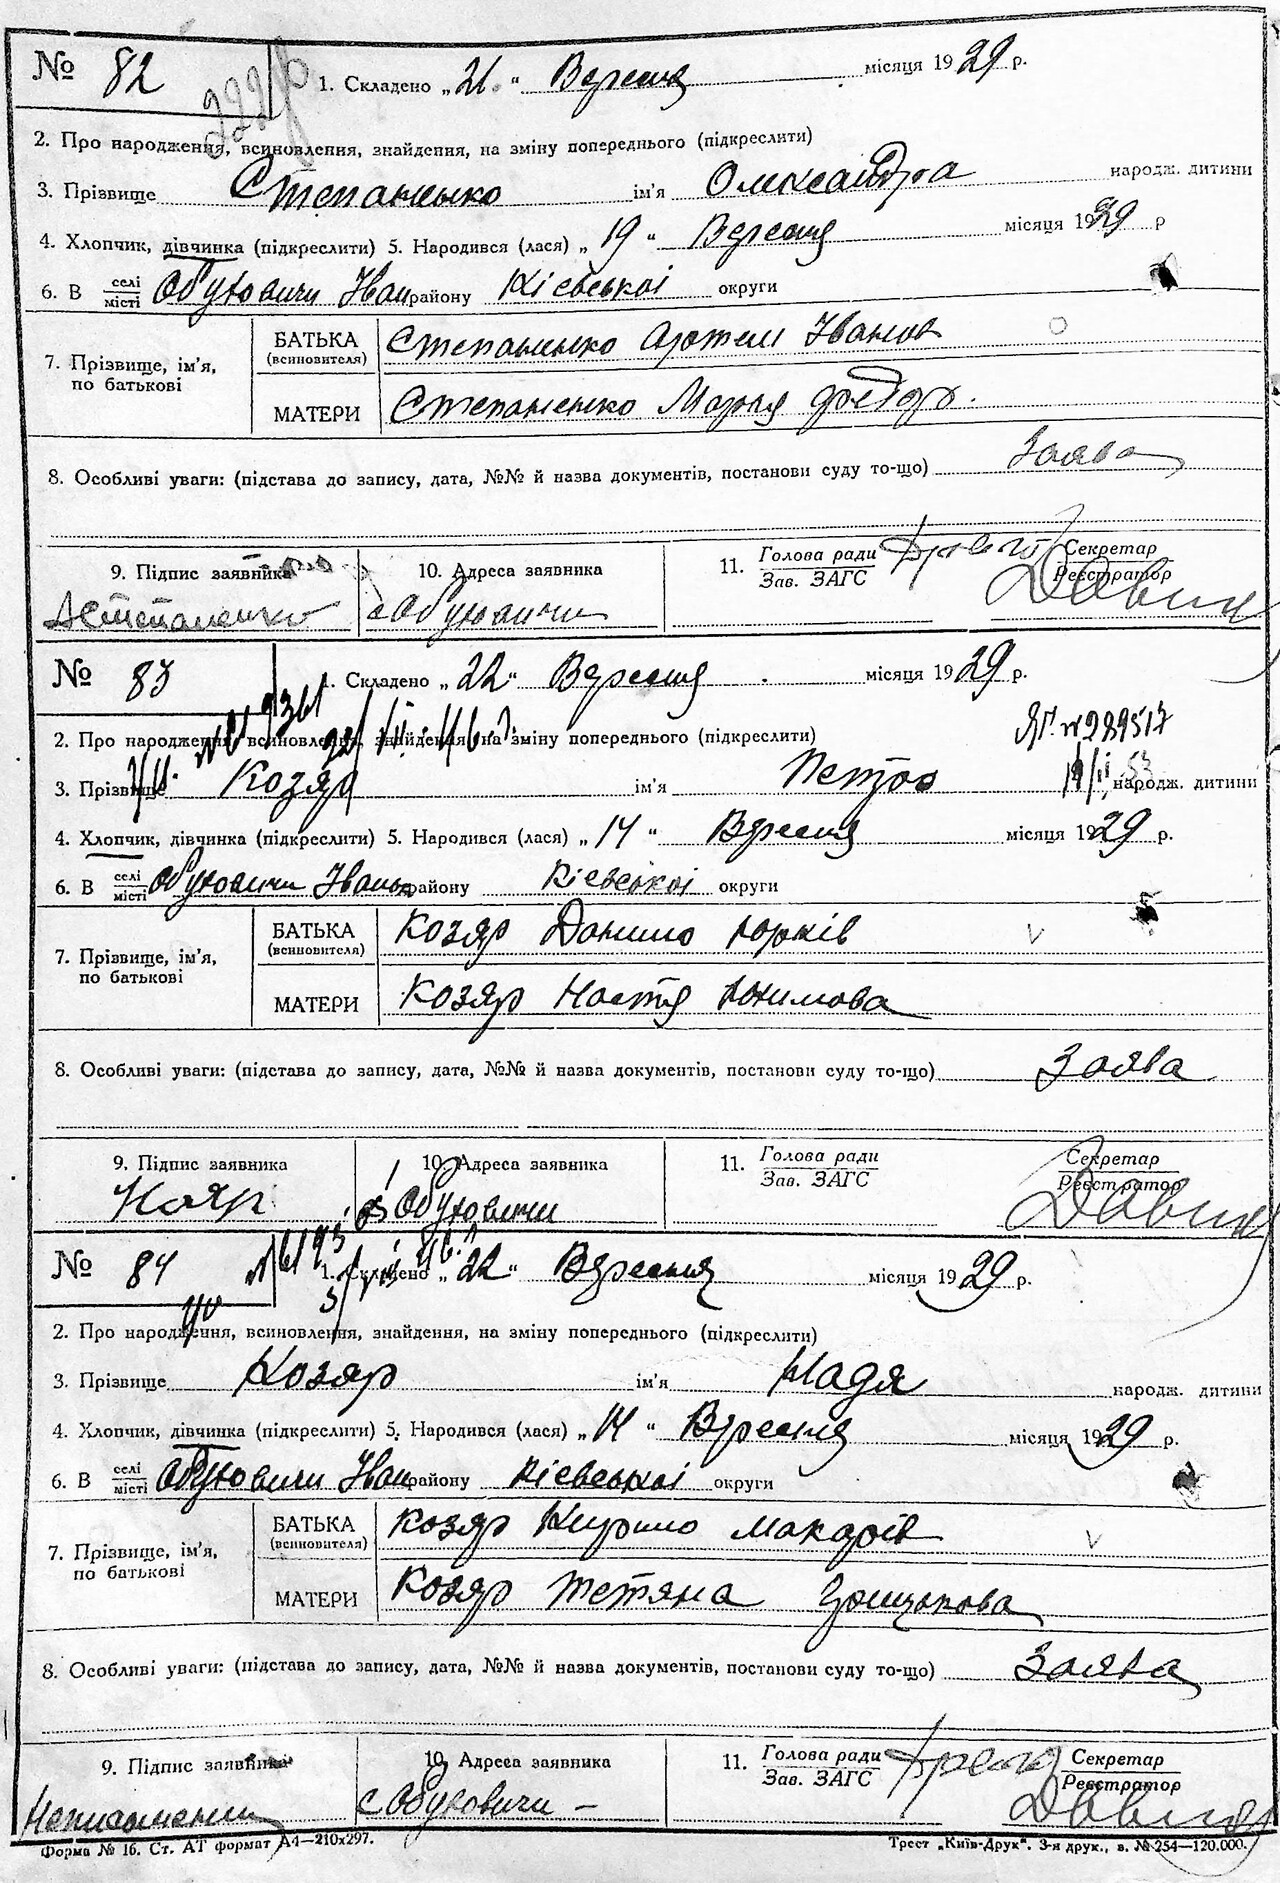 № 82 1. Складено „21.“ Вересня місяця 1929 р.
2. Про народження, всиновлення, знайдення, на зміну попереднього (підкреслити)
3. Прізвище Степаненко ім'я Олександра народж. дитини
4. Хлопчик, дівчинка (підкреслити) 5. Народився (лася) „19“ Вересня місяця 1929 р
6. В селі/місті Обуховичи Іван району Кієвської округи
7. Прізвище, ім'я, по батькові
БАТЬКА (всиновителя) Степаненко Артем Іванов
МАТЕРИ Степаненко Марья Федор.
8. Особливі уваги: (підстава до запису, дата, №№ й назва документів, постанови суду то-що) Заява
9. Підпис заявника 10. Адреса заявника 11. Голова ради / Зав. ЗАГС Секретар / Реєстратор
АСтепаненко с Обуховичи
№ 83 1. Складено „22“ Вересня місяця 1929 р.
2. Про народження, всиновлення, знайдення, на зміну попереднього (підкреслити) № 289517
3. Прізвище Козяр ім'я Петро народж. дитини
4. Хлопчик, дівчинка (підкреслити) 5. Народився (лася) „14“ Вересня місяця 1929 р.
6. В селі/місті Обуховичи Іванк району Кієвської округи
7. Прізвище, ім'я, по батькові
БАТЬКА (всиновителя) Козяр Данило Юрків
МАТЕРИ Козяр Настя Юхимова
8. Особливі уваги: (підстава до запису, дата, №№ й назва документів, постанови суду то-що) Заява
9. Підпис заявника 10. Адреса заявника 11. Голова ради / Зав. ЗАГС Секретар / Реєстратор
Козяр Обуховичи
№ 84 1. Складено „22“ Вересня місяця 1929 р.
2. Про народження, всиновлення, знайдення, на зміну попереднього (підкреслити)
3. Прізвище Козяр ім'я Надя народж. дитини
4. Хлопчик, дівчинка (підкреслити) 5. Народився (лася) „14“ Вересня місяця 1929 р.
6. В селі/місті Обуховичи Іван району Кієвської округи
7. Прізвище, ім'я, по батькові
БАТЬКА (всиновителя) Козяр Кирило Макарів
МАТЕРИ Козяр Тетяна Грицькова
8. Особливі уваги: (підстава до запису, дата, №№ й назва документів, постанови суду то-що) Заява
9. Підпис заявника 10. Адреса заявника 11. Голова ради / Зав. ЗАГС Секретар / Реєстратор
Неписьменни с Обуховичи –
Форма № 16. Ст. АТ формат А4—210х297. Трест „Київ-Друк“. 3-я друк., в. № 254—120.000.